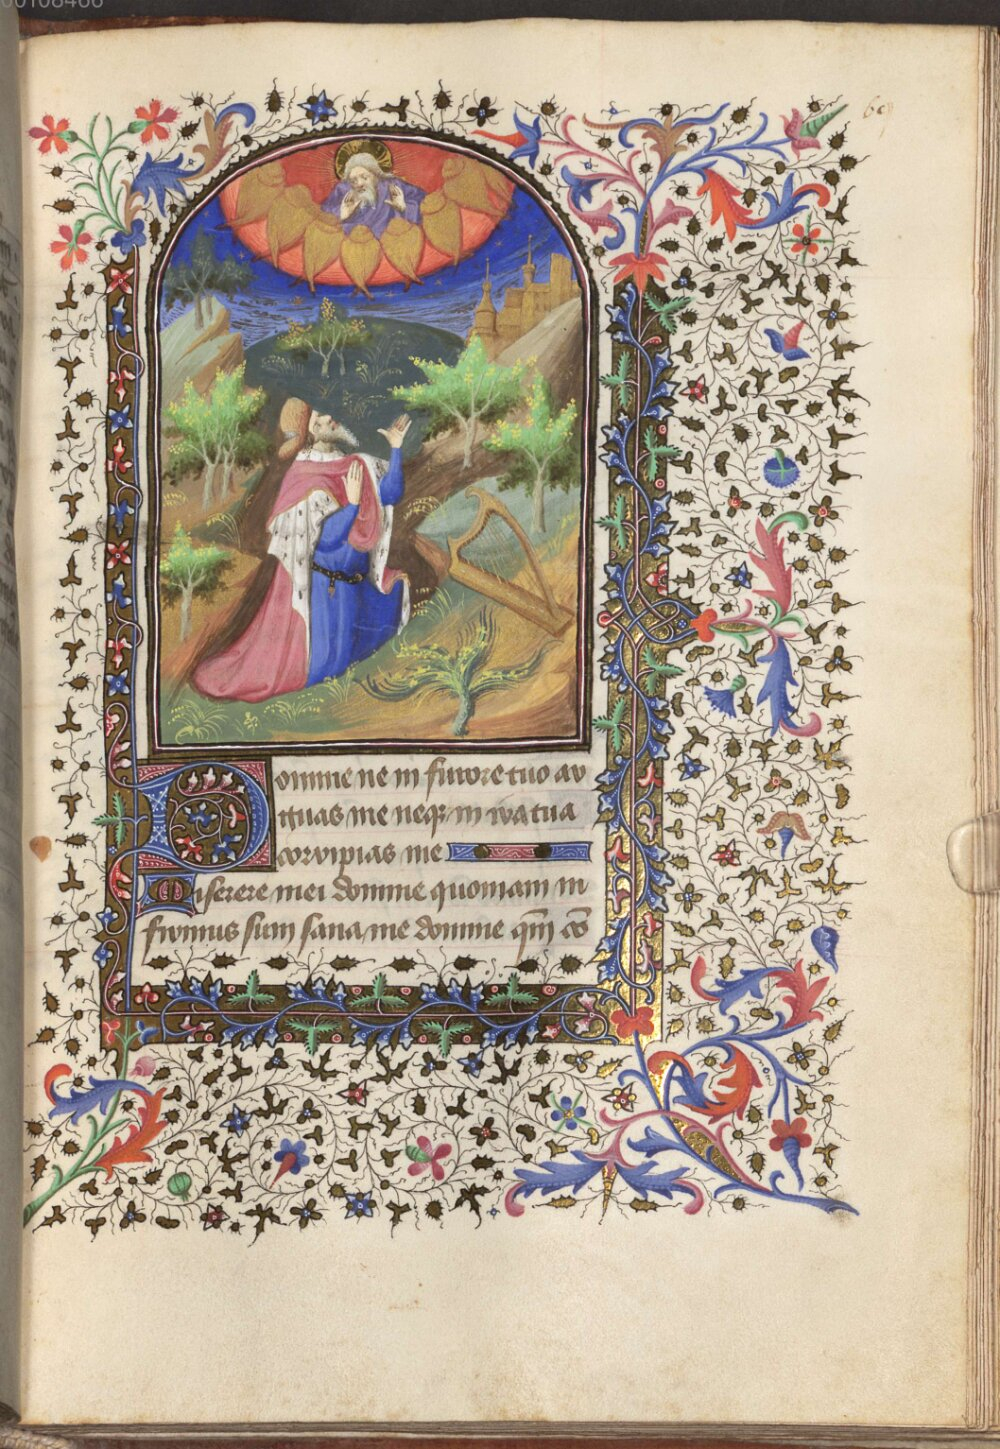 00108466
69
Domine ne in furore tuo ar
guas me neqȝ in ira tua
corripias me
Miserere mei domine quoniam in
firmus sum sana me domine qm̄ cō